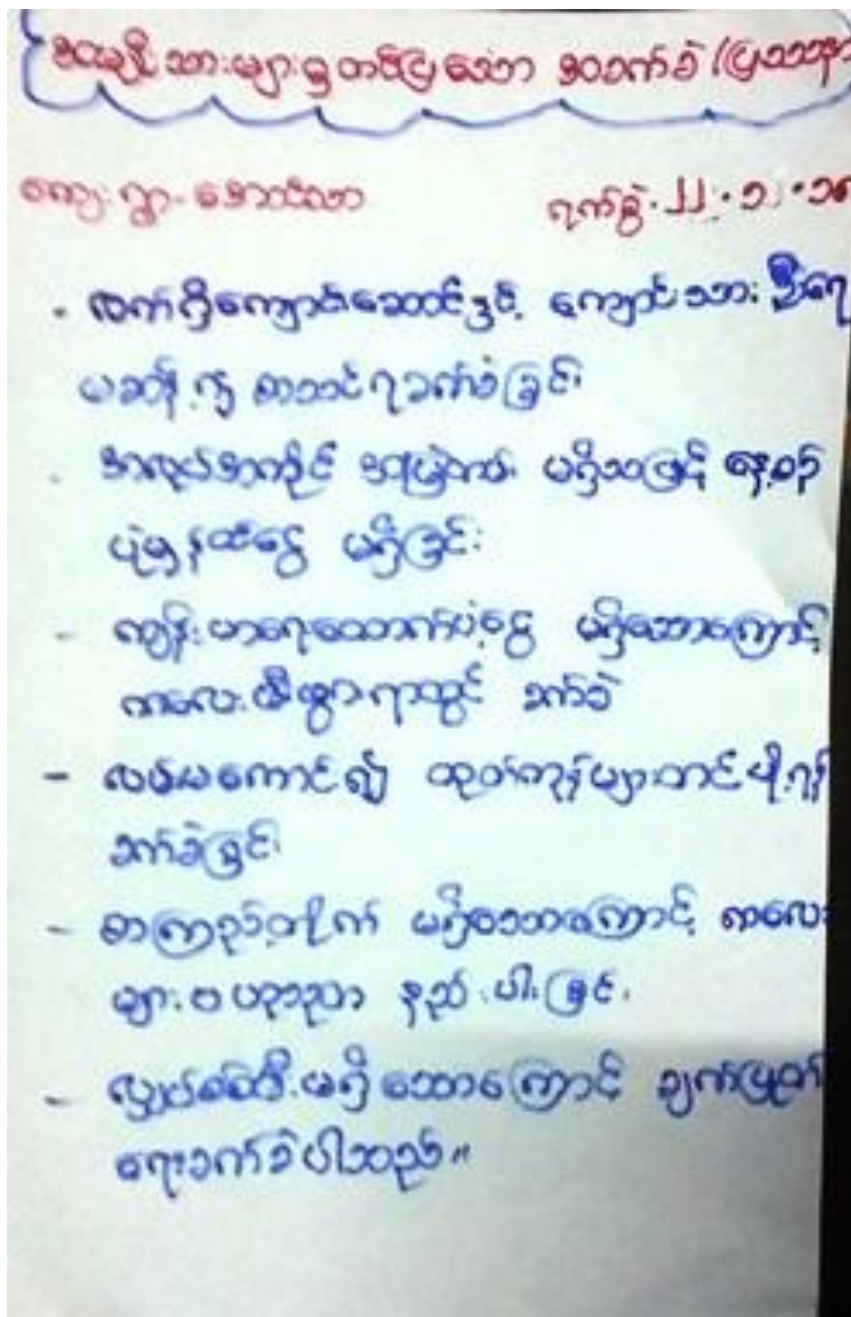 အမျိုးသားများမှ တင်ပြသော အခက်ခဲ (ပြဿနာ
ကျေးရွာ- အောင်သာ ရက်စွဲ- ၂၂.၁၂.၁၈
- လက်ရှိကျောင်းဆောင်နှင့် ကျောင်းသား ဦးရေ
မဆန့်၍ စာသင်ရခက်ခဲခြင်း
- အလုပ်အကိုင် အမြဲတမ်း မရှိသဖြင့် နေ့စဉ်
ပုံမှန်ထံငွေ မရှိခြင်း
- ကျန်းမာရေးထောက်ပံ့ငွေ မရှိသောကြောင့်
ကလေးမီးဖွားရာတွင် ခက်ခဲ
- လမ်းမကောင်း၍ ထုတ်ကုန်များတင်ပို့ရန်
ခက်ခဲခြင်း
- စာကြည့်တိုက် မရှိသောကြောင့် ကလေး
များဗဟုသုတ နည်းပါးခြင်း
- လျှပ်စစ်မီးမရှိသောကြောင့် ချက်ပြုတ်
ရေးခက်ခဲပါသည်။